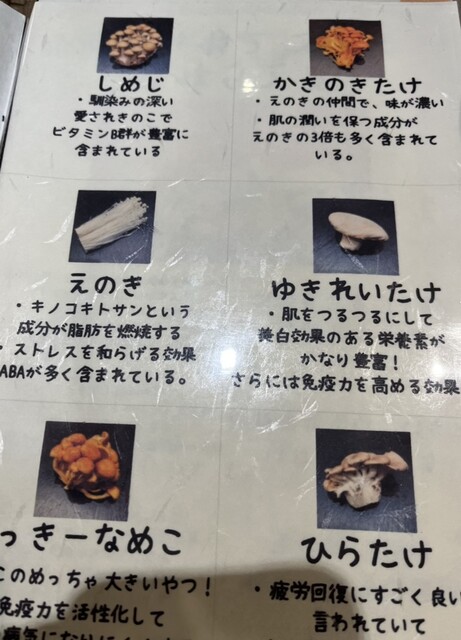 しめじ
・馴染みの深い
愛されきのこで
ビタミンB群が豊富に
含まれている
かきのきたけ
・えのきの仲間で、味が濃い
・肌の潤いを保つ成分が
えのきの3倍も多く含まれて
いる。
えのき
・キノコキトサンという
成分が脂肪を燃焼する
・ストレスを和らげる効果
ABAが多く含まれている。
ゆきれいたけ
・肌をつるつるにして
美白効果のある栄養素が
かなり豊富！
さらには免疫力を高める効果
っきーなめこ
このめっちゃ大きいやつ！
免疫力を活性化して
病気になりにくく
ひらたけ
・疲労回復にすごく良い
言われていて